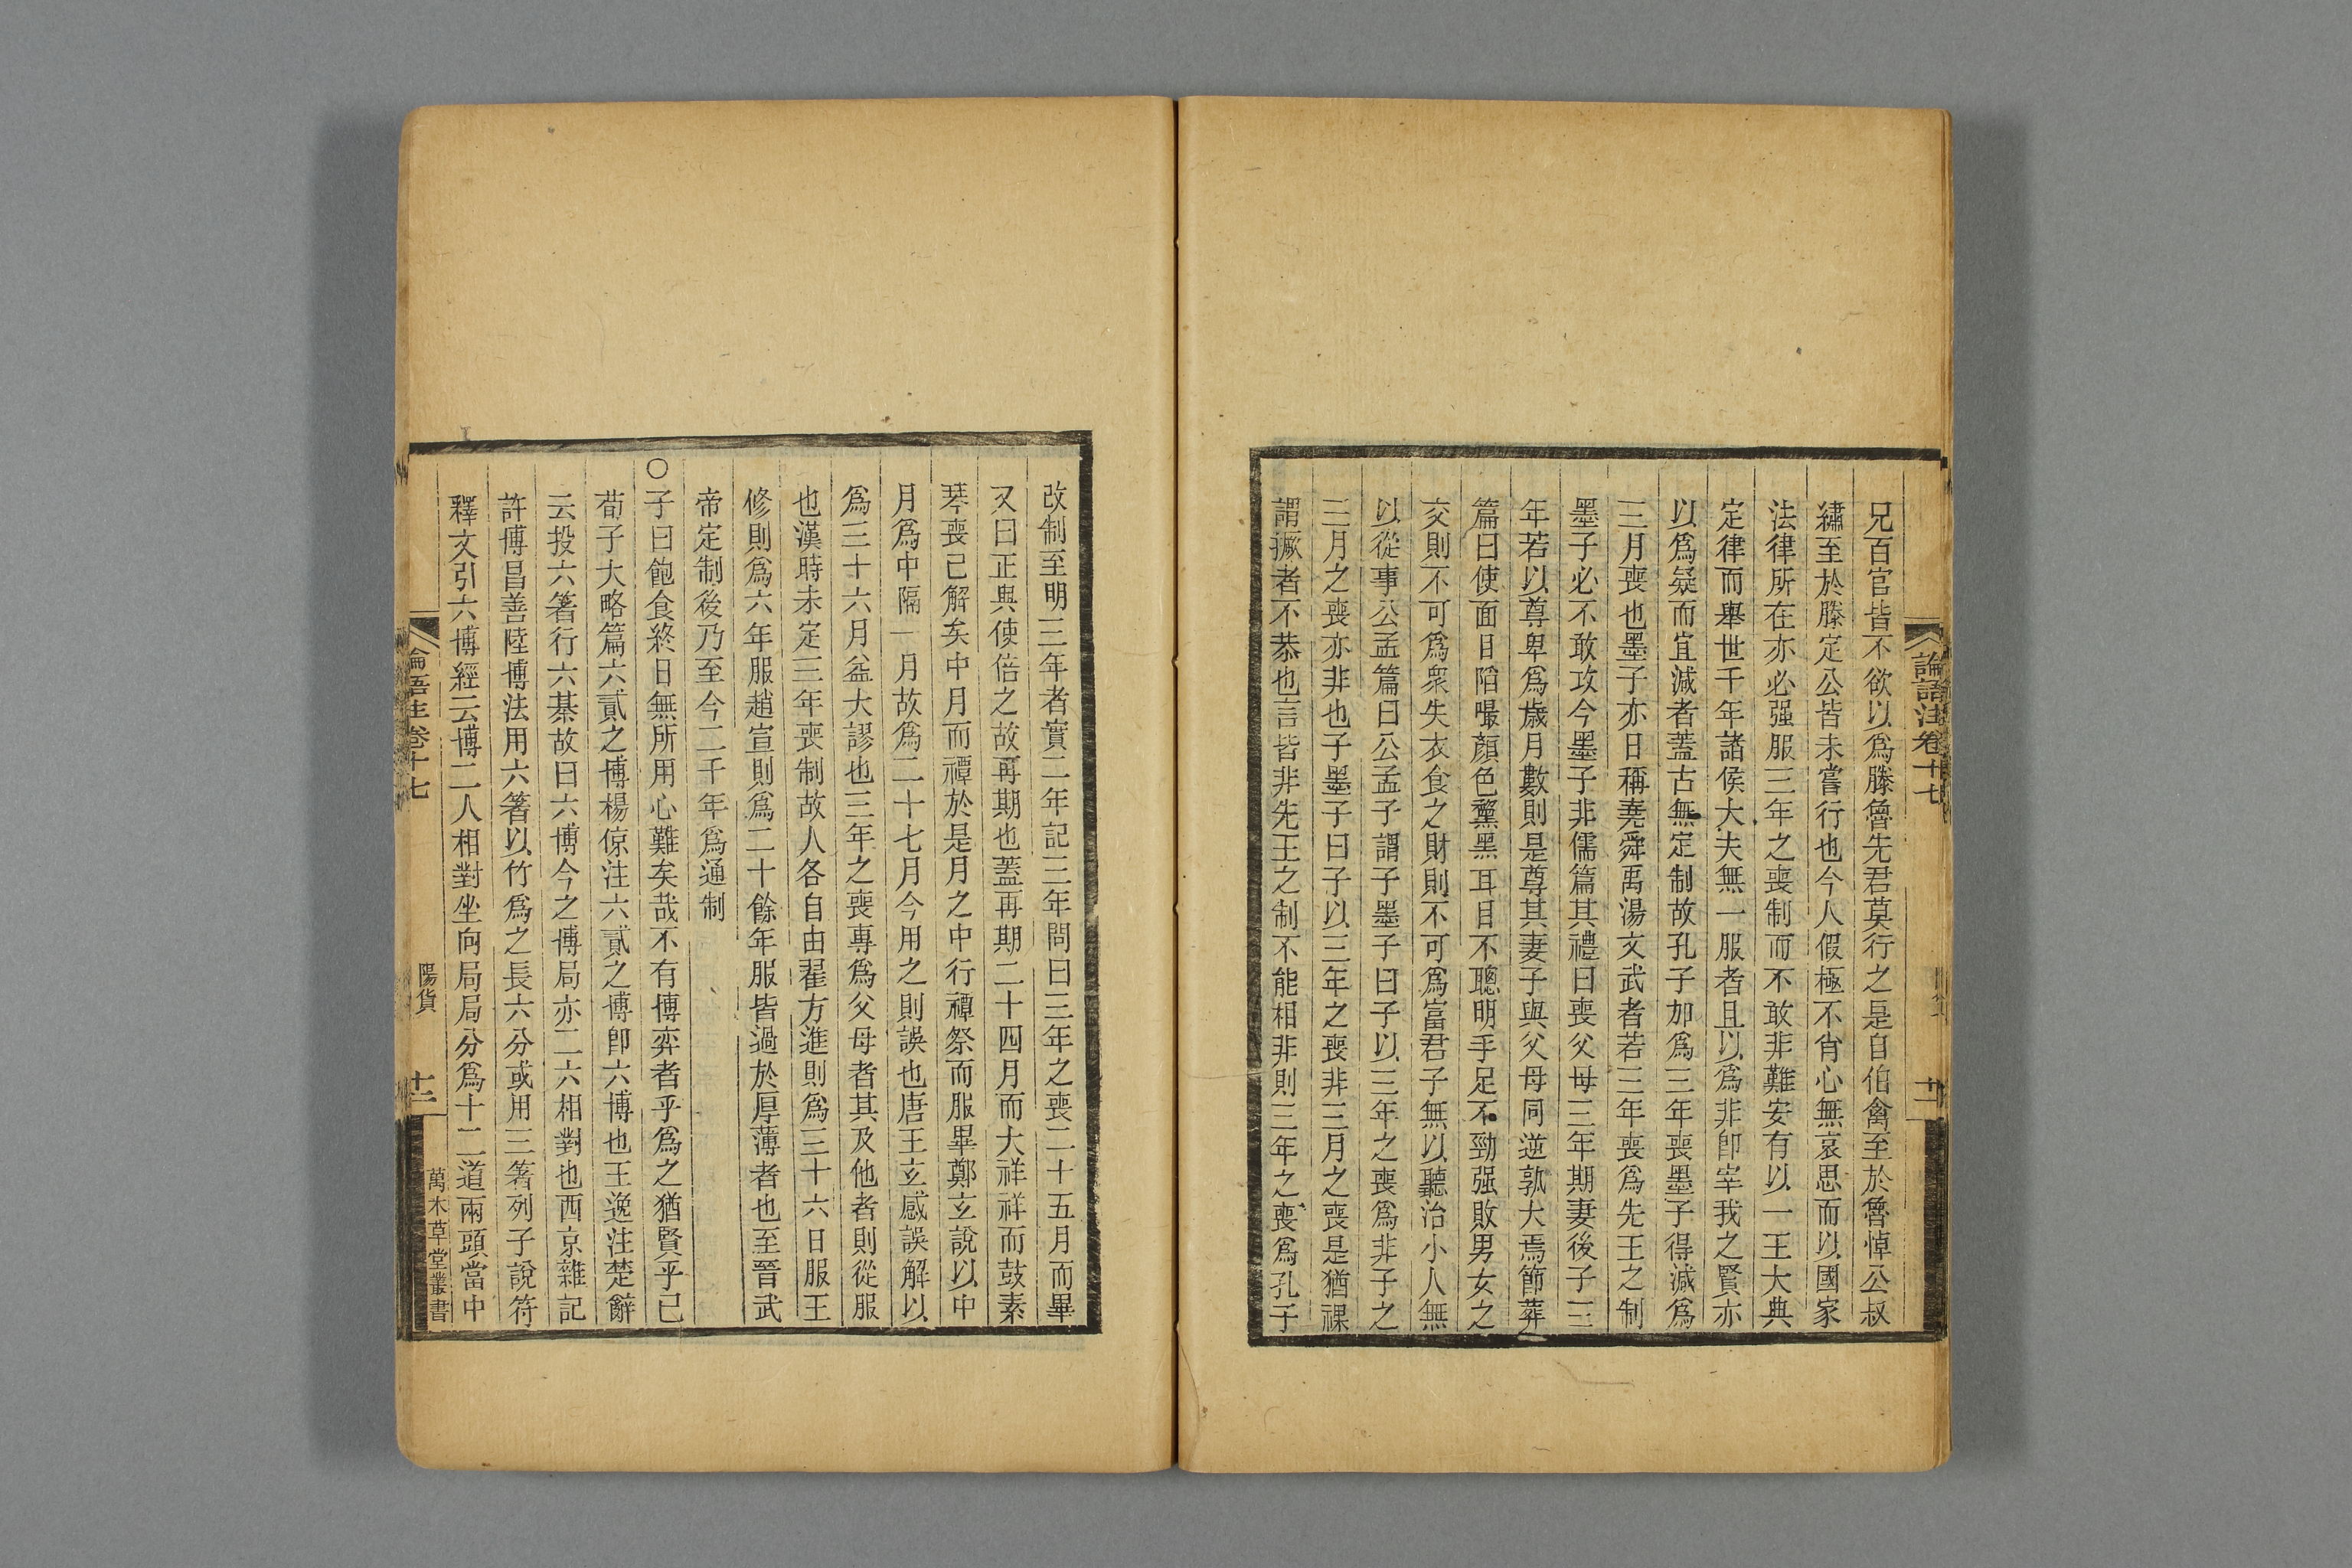 論語注卷十七
十一
兄百官皆不欲以爲滕魯先君莫行之是自伯禽至於魯悼公叔
繡至於滕定公皆未嘗行也今人假極不肖心無哀思而以國家
法律所在亦必强服三年之喪制而不敢非難安有以一王大典
定律而舉世千年諸侯大夫無一服者且以爲非卽宰我之賢亦
以爲疑而宜減者蓋古無定制故孔子加爲三年喪墨子得減爲
三月喪也墨子亦日稱堯舜禹湯文武者若三年喪爲先王之制
墨子必不敢攻今墨子非儒篇其禮曰喪父母三年期妻後子三
年若以尊卑爲歲月數則是尊其妻子與父母同逆孰大焉節葬
篇曰使面目陷𡾋顏色黧黑耳目不聰明手足不勁强敗男女之
交則不可爲衆失衣食之財則不可爲富君子無以聽治小人無
以從事公孟篇曰公孟子謂子墨子曰子以三年之喪爲非子之
三月之喪亦非也子墨子曰子以三年之喪非三月之喪是猶祼
謂撅者不恭也言皆非先王之制不能相非則三年之喪爲孔子
改制至明三年者實二年記三年問曰三年之喪二十五月而畢
又曰正與使倍之故再期也蓋再期二十四月而大祥祥而鼓素
琴喪已解矣中月而禫於是月之中行禫祭而服畢鄭玄說以中
月爲中隔一月故爲二十七月今用之則誤也唐王玄感誤解以
爲三十六月益大謬也三年之喪專爲父母者其及他者則從服
也漢時未定三年喪制故人各自由翟方進則爲三十六日服王
修則爲六年服趙宣則爲二十餘年服皆過於厚薄者也至晉武
帝定制後乃至今二千年爲通制
○子曰飽食終日無所用心難矣哉不有博弈者乎爲之猶賢乎已
荀子大略篇六貳之博楊倞注六貳之博卽六博也王逸注楚辭
云投六箸行六棊故曰六博今之博局亦二六相對也西京雜記
許博昌善陸博法用六箸以竹爲之長六分或用三箸列子說符
釋文引六博經云博二人相對坐向局局分爲十二道兩頭當中
論語注卷十七
陽貨
十二
萬木草堂叢書